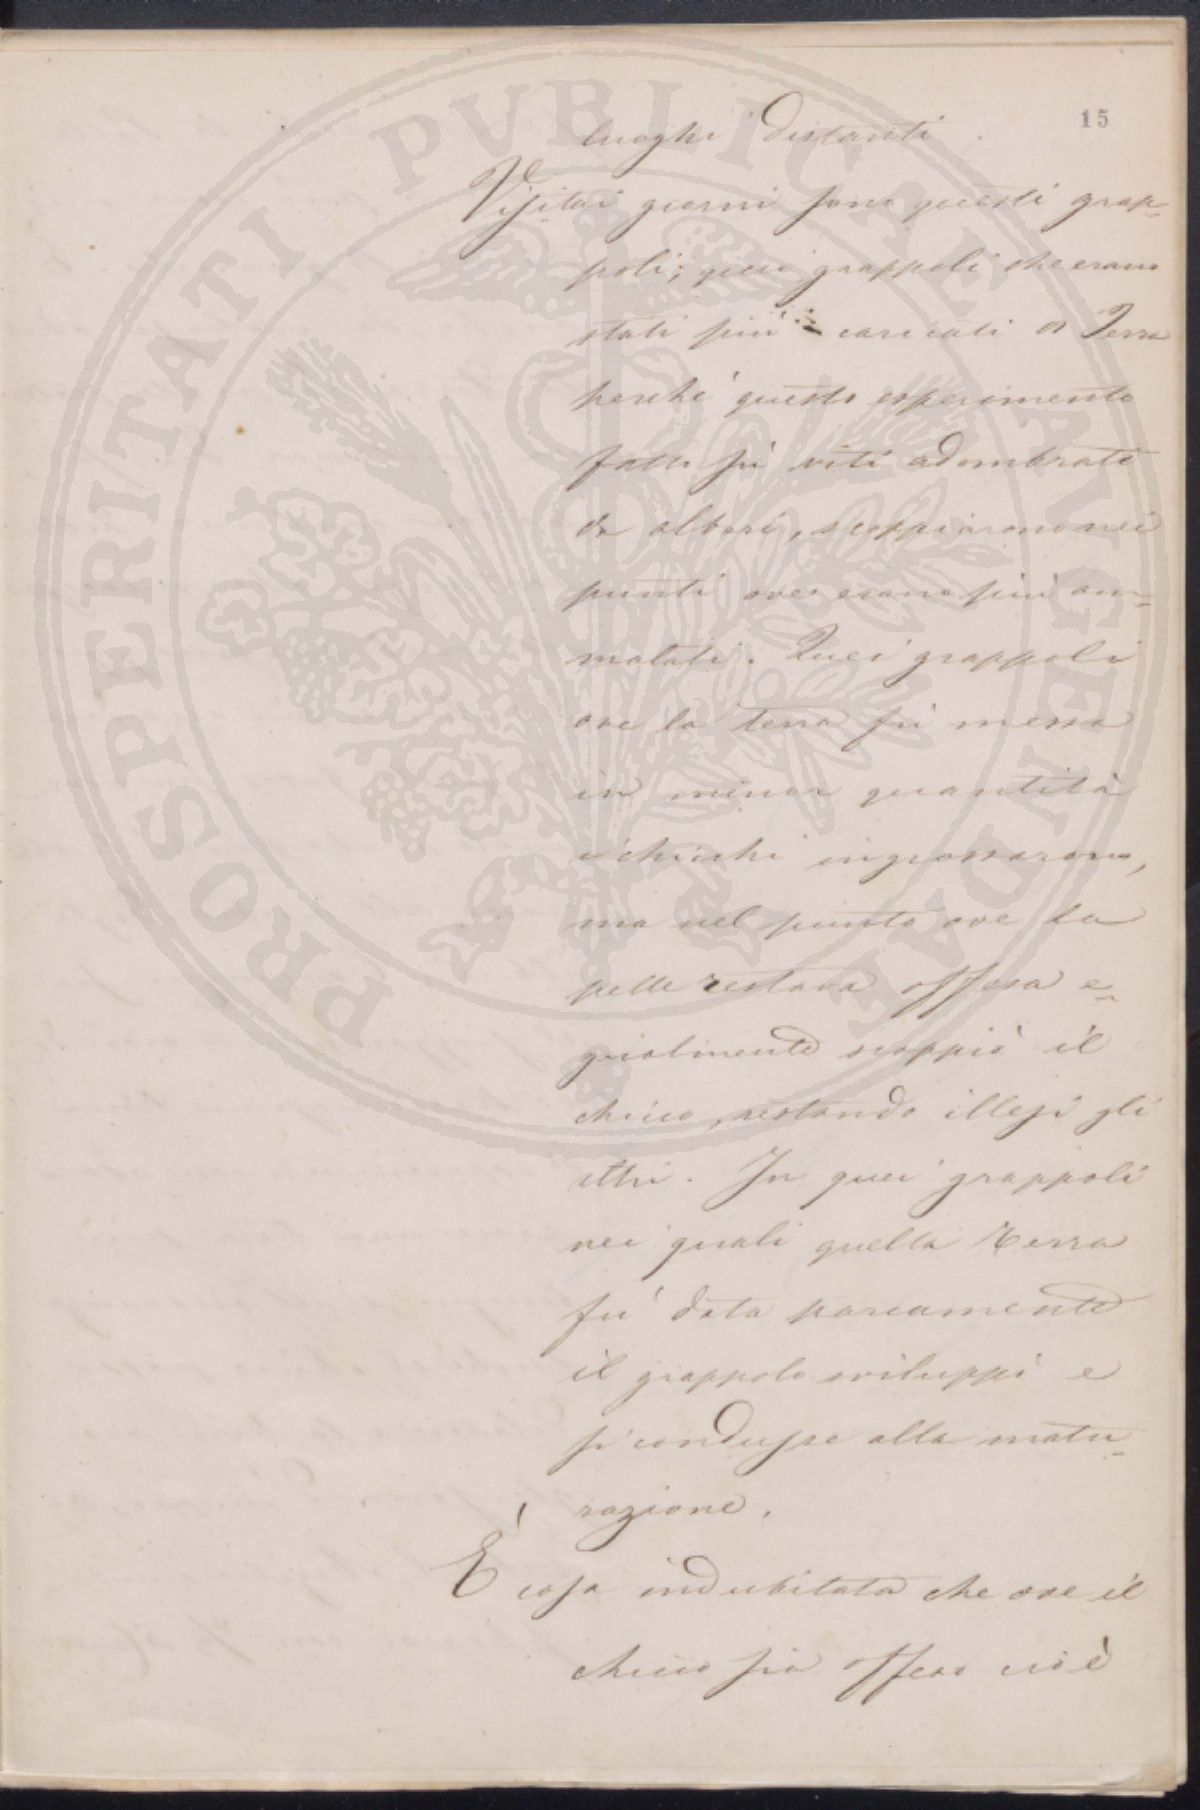 15
luoghi distanti.
Visitai giorni sono questi grap-
poli; quei grappoli che erano
stati più caricati di Terra
perchè questo esperimento
fatto sù viti adombrate
da alberi, scoppiarono nei
punti ove erano più am-
malati. Quei grappoli
ove la terra fù messa
in minor quantità
i chicchi ingrossarono,
ma nel punto ove la
pelle restava offesa e-
gualmente scoppiò il
chicco, restando illesi gli
altri. In quei grappoli
nei quali quella Terra
fù data parcamente
il grappolo sviluppò e
si condusse alla matu-
razione.
È cosa indubitata che ove il
chicco sia offeso cioè
PROSPERITATI PVBLICAE AVGENDAE